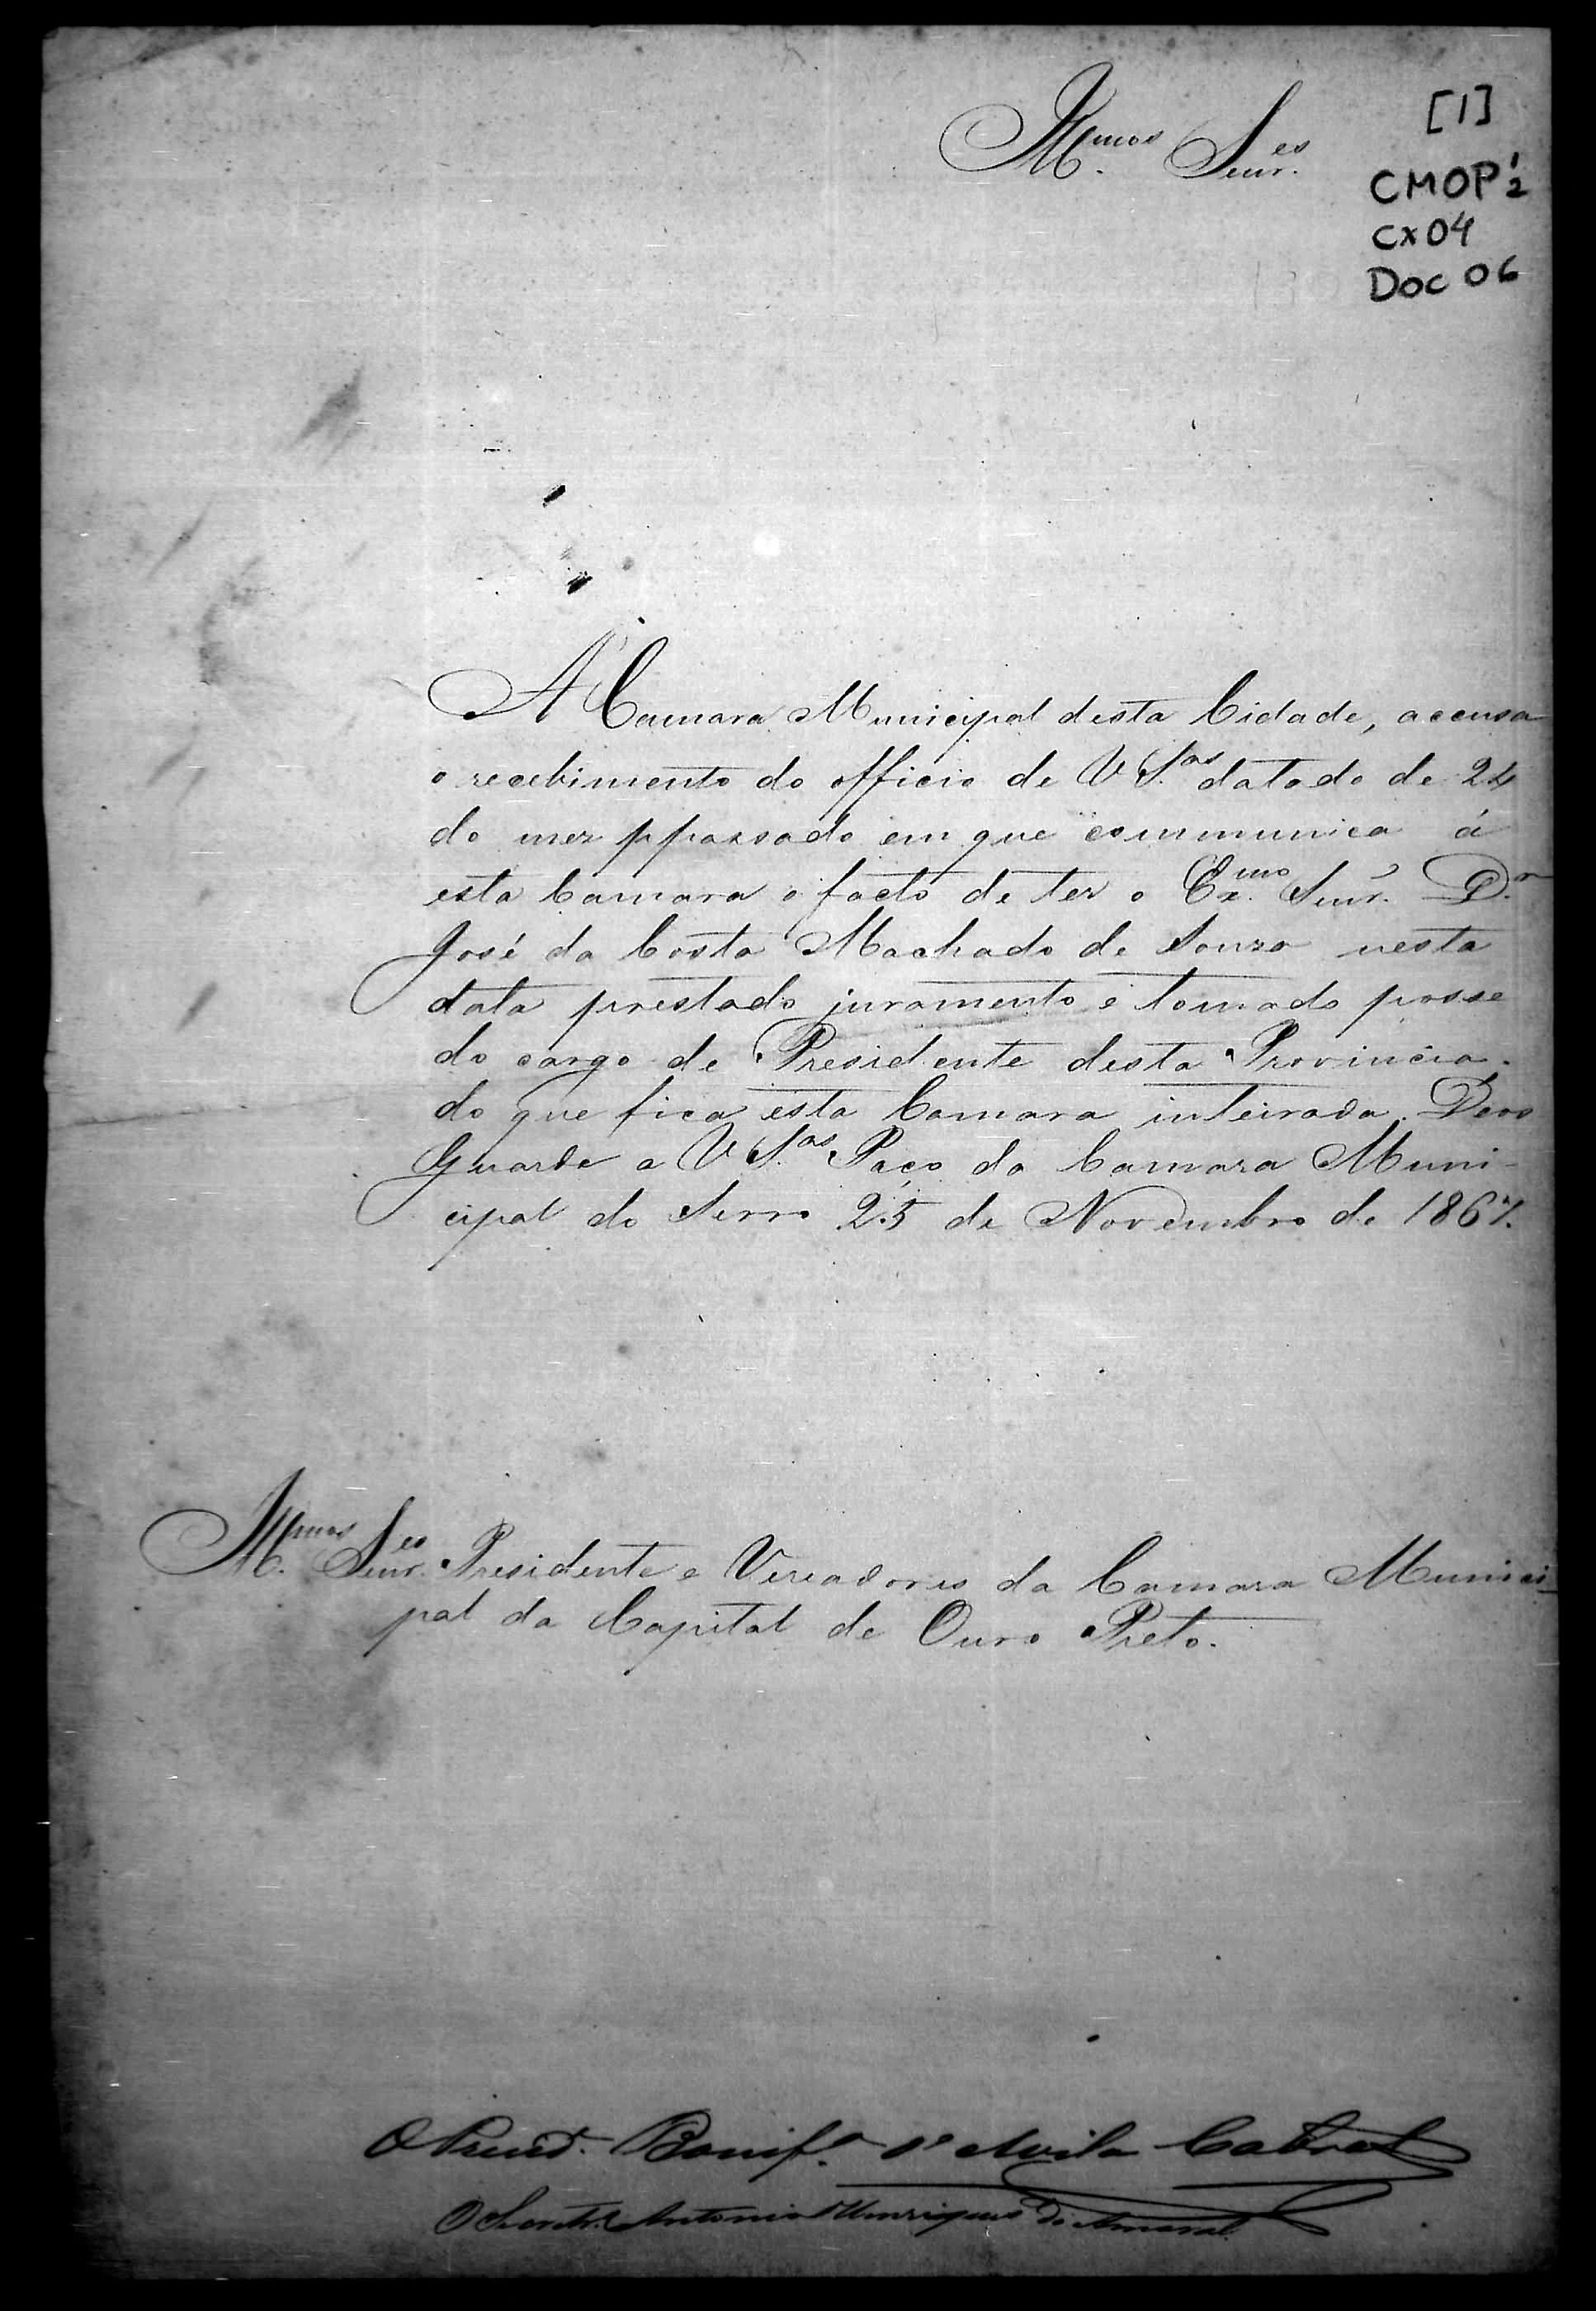 Ill.mos Senr.es
[1]
CMOP 1/2
CX 04
DOC 06
A Camara Municipal desta Cidade, accusa
o recebimento do officio de V S.as datado de 24
do mez ppassado em que communica á
esta Camara o facto de ter o Ex.mo Senr. D.r
José da Costa Machado de Souza nesta
data prestado juramento e tomado posse
do cargo de Presidente desta Provincia.
do que fica esta Camara inteirada. Deos
Guarde a V S.as Paço da Camara Muni-
cipal do Serro 25 de Novembro de 1867.
Ill.mos Senr.es Presidente e Vereadores da Camara Munici-
pal da Capital de Ouro Preto.
O Presid. Bonif.o d'Avila Cabral
O Secretr.o Antonio Henriques do Amaral